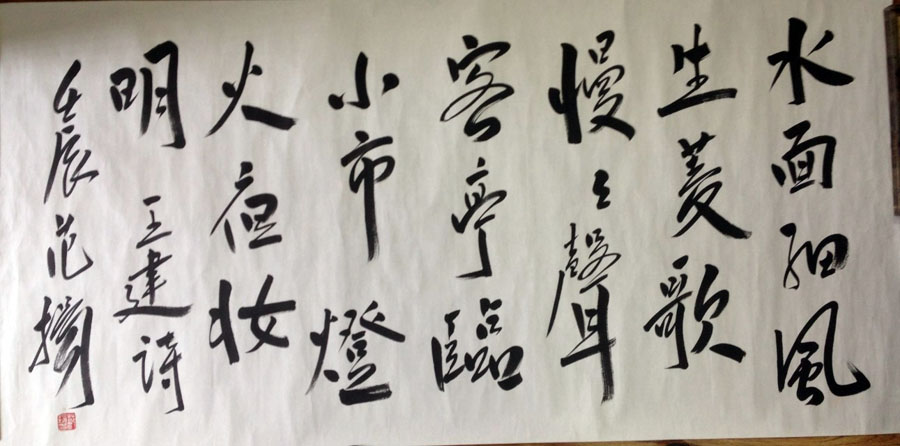 水面细風
生菱歌
慢々聲
客亭臨
小市燈
火夜妆
明 王建诗
壬辰范